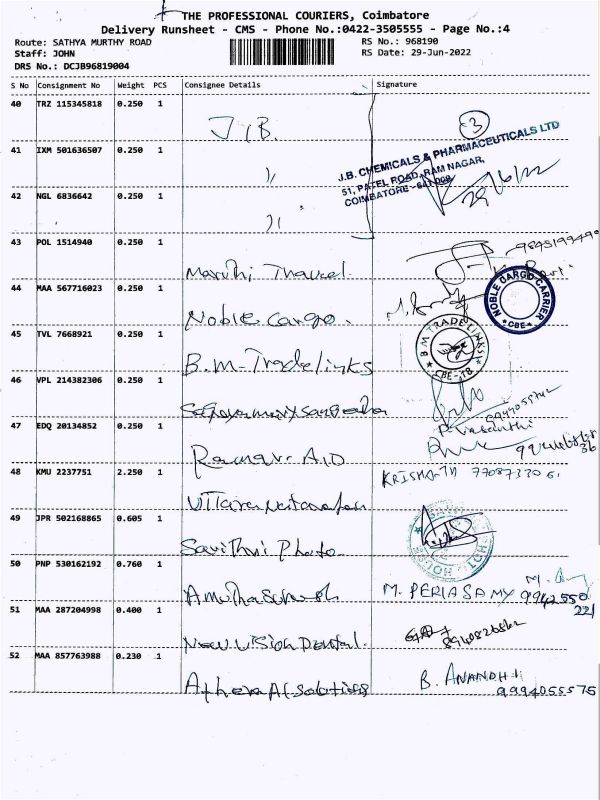 THE PROFESSIONAL COURIERS, Coimbatore
Delivery Runsheet - CMS - Phone No.:0422-3505555 - Page No.:4
Route: SATHYA MURTHY ROAD
RS No.: 968190
Staff: JOHN
RS Date: 29-Jun-2022
DRS No.: DCJB96819004
S No Consignment No Weight PCS Consignee Details Signature
40 TRZ 115345818 0.250 1 J.B. 3
41 IXM 501636507 0.250 1 ))
J.B. CHEMICALS & PHARMACEUTICALS LTD
51, PATEL ROAD, RAM NAGAR,
COIMBATORE - 641 009
29/6/22
42 NGL 6836642 0.250 1 ))
43 POL 1514940 0.250 1 Maruthi Travel.
44 MAA 567716023 0.250 1 Noble Cargo.
NOBLE CARGO CARRIER
* CBE *
45 TVL 7668921 0.250 1 B.M-Tradelinks
B M TRADE LINKS
* CBE-TB *
46 VPL 214382306 0.250 1
P. Vasanthi
47 EDQ 20134852 0.250 1
48 KMU 2237751 2.250 1
49 JPR 502168865 0.605 1 Savithri Photo
50 PNP 530162192 0.760 1 Amitha Suresh M. PERIASAMY 9942550
221
51 MAA 287204998 0.400 1 New Vision Dental.
52 MAA 857763988 0.230 1 Athena Af solutions B. ANANDHI
9994055575